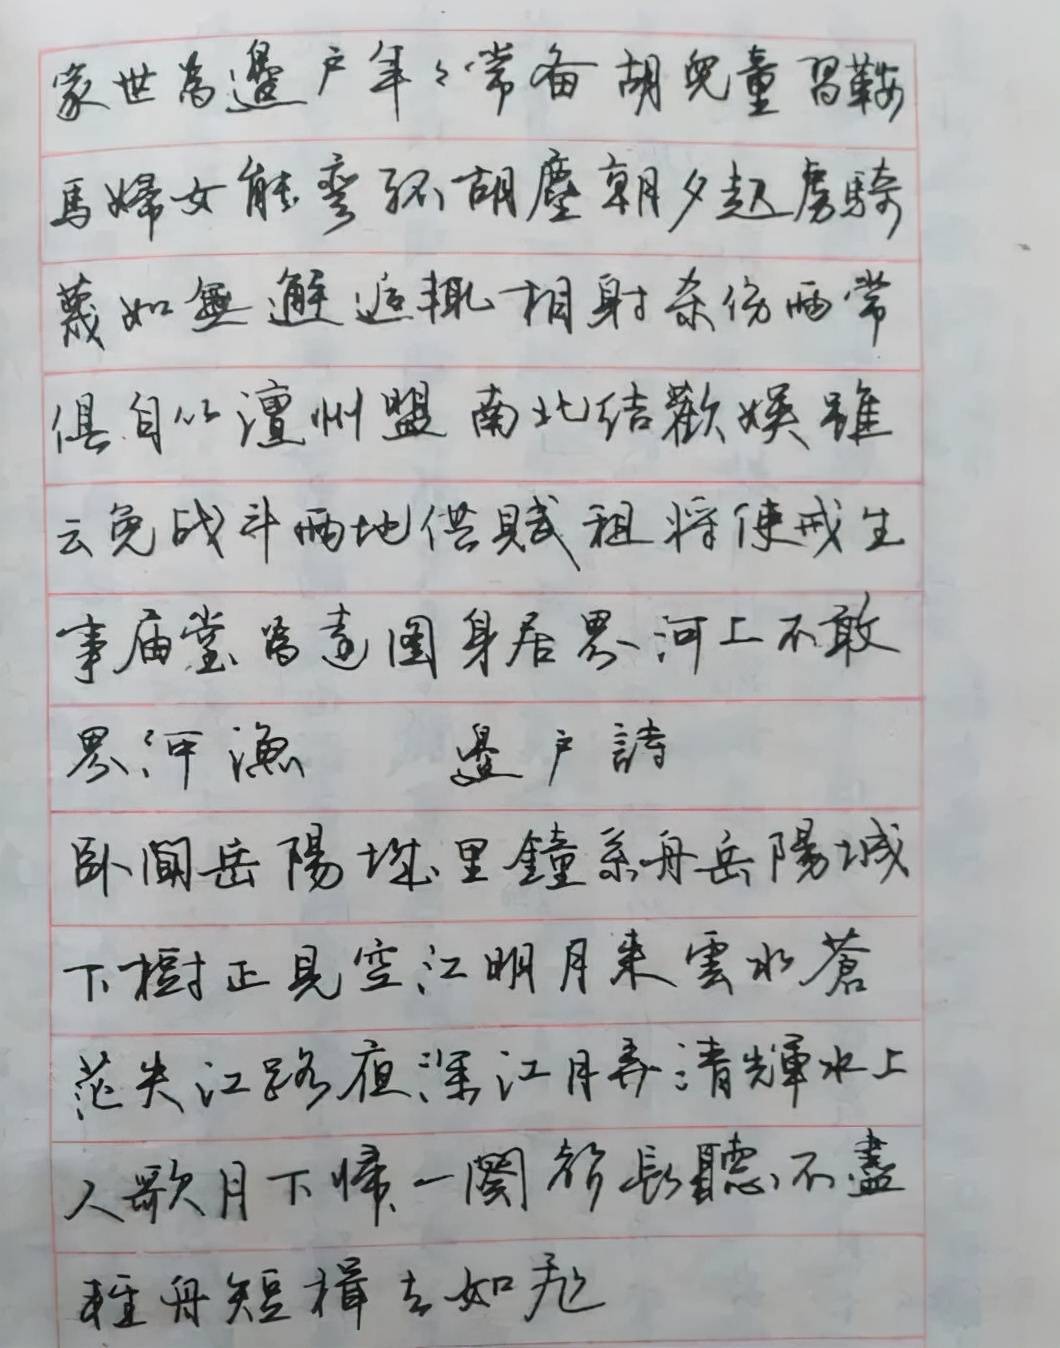 家世為邊户年々常备胡兒童習鞍
馬婦女能彎弧胡塵朝夕起虜騎
蔑如無邂逅輒相射杀伤兩常
俱自从澶州盟南北结歡娱雖
云免战斗兩地供賦租将使戒生
事庙堂為遠图身居界河上不敢
界河漁 邊户詩
卧聞岳陽城里鐘系舟岳陽城
下樹正見空江明月来雲水蒼
茫失江路夜深江月弄清輝水上
人歌月下帰一闋声長聽不盡
軽舟短楫去如飞